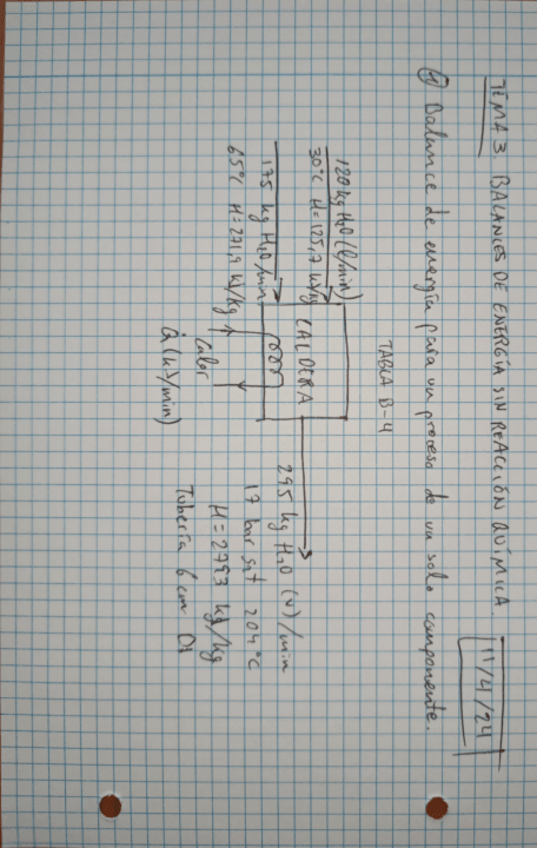 TEMA 3. BALANCES DE ENERGÍA SIN REACCIÓN QUÍMICA.
11/4/24
① Balance de energía para un proceso de un solo componente.
TABLA B-4
120 kg H2O (l/min)
30°C H=125,7 kJ/kg
175 kg H2O/min
65°C H=271,9 kJ/kg
CALDERA
Calor
Q̇ (kJ/min)
295 kg H2O (v)/min
17 bar sat 204°C
H=2793 kJ/kg
Tubería 6 cm DI